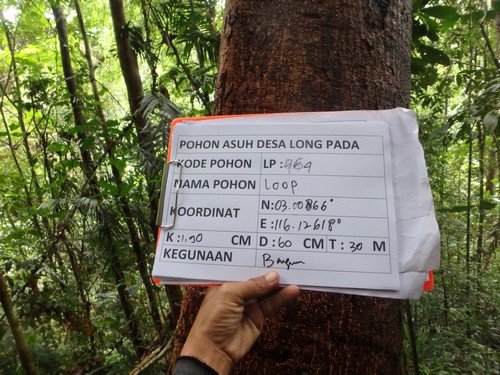 POHON ASUH DESA LONG PADA
KODE POHON LP : 464
NAMA POHON Loop
KOORDINAT N: 03.00866°
E : 116.12618°
K : 1,90 CM D : 60 CM T : 30 M
KEGUNAAN